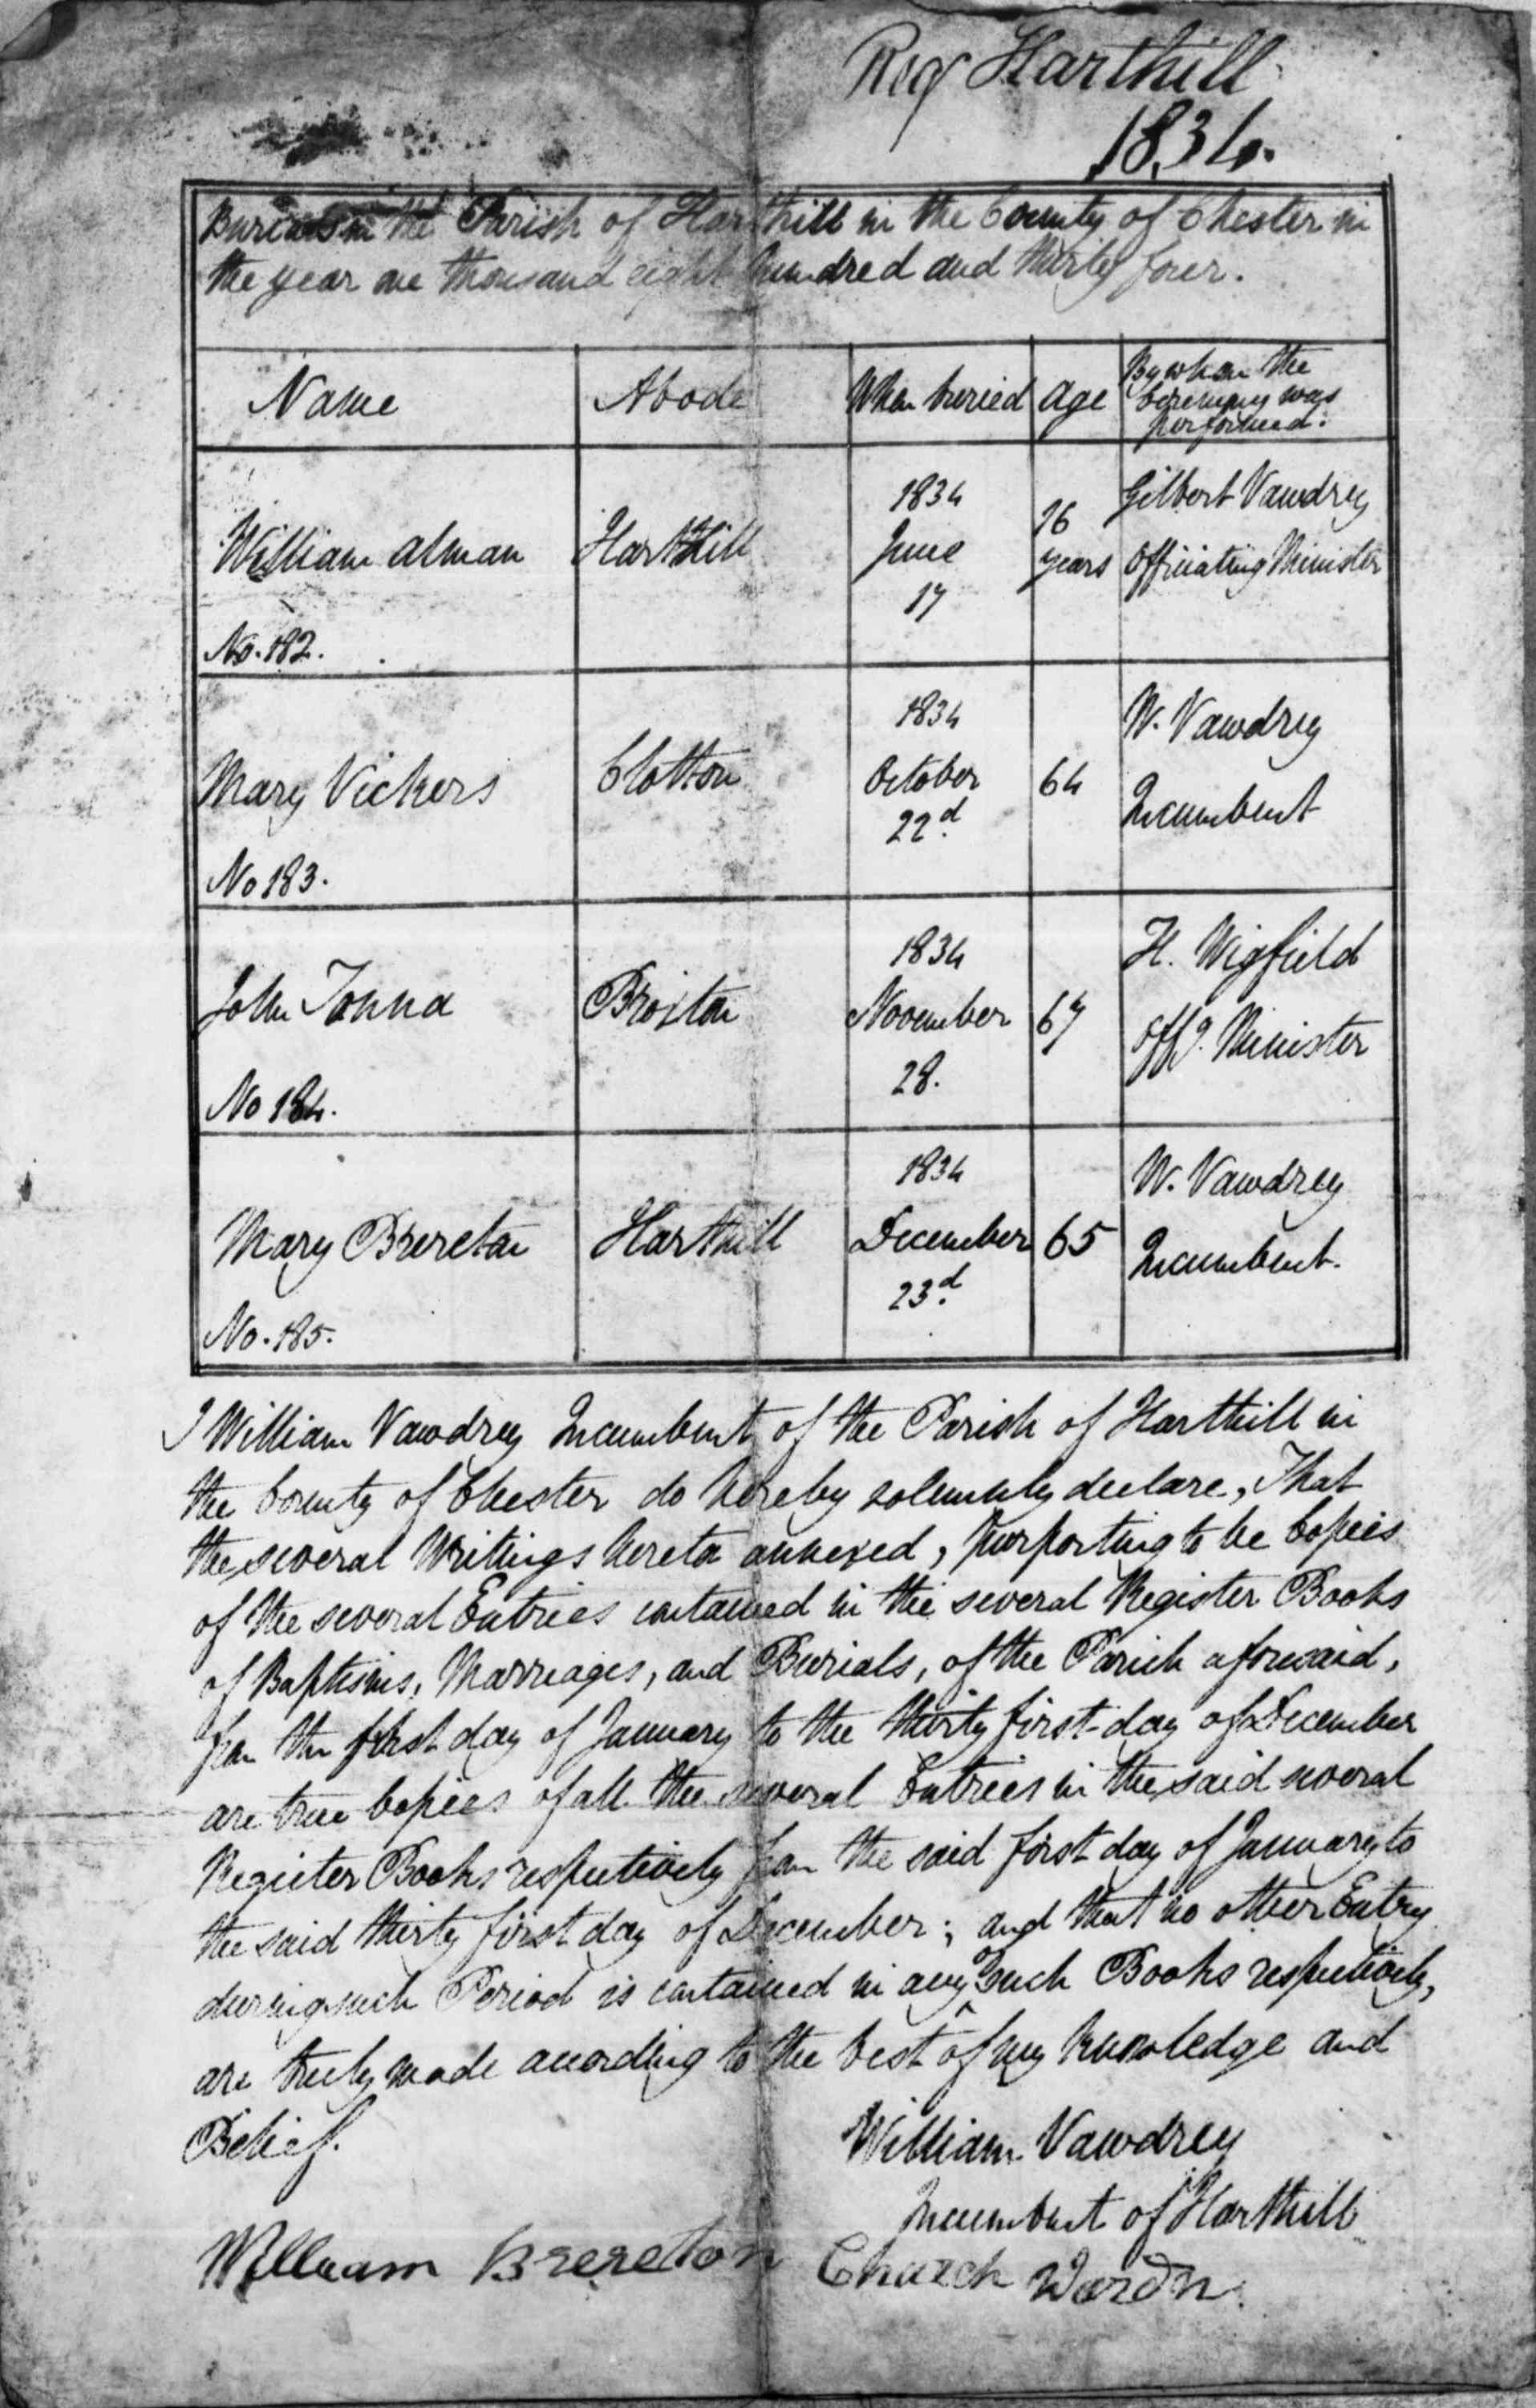 Reg Harthill
1834.
Burials in the Parish of Harthill in the County of Chester in
the year one thousand eight hundred and thirty four.
Name
Abode
When buried
Age
By whom the
Ceremony was
performed.
William Alman
No. 182.
Harthill
1834
June
17
76
years
Gilbert Vawdrey
Officiating Minister
Mary Vickers
No 183.
Clotton
1834
October
22d.
64
W. Vawdrey
Incumbent
John Tonna
No 184.
Broxton
1834
November
28.
67
H. Wigfield
Offg. Minister
Mary Brereton
No. 185.
Harthill
1834
December
23d.
65
W. Vawdrey
Incumbent.
I William Vawdrey Incumbent of the Parish of Harthill in
the County of Chester do hereby solemnly declare, That
the several Writings hereto annexed, purporting to be Copies
of the several Entries contained in the several Register Books
of Baptisms, Marriages, and Burials, of the Parish aforesaid,
from the first day of January to the thirty first day of December
are true Copies of all the several Entries in the said several
Register Books respectively from the said first day of January to
the said thirty first day of December; and that no other Entry
during such Period is contained in any such Books respectively,
are truly made according to the best of my knowledge and
Belief.
William Vawdrey
Incumbent of Harthill
William Brereton Church Wardn.